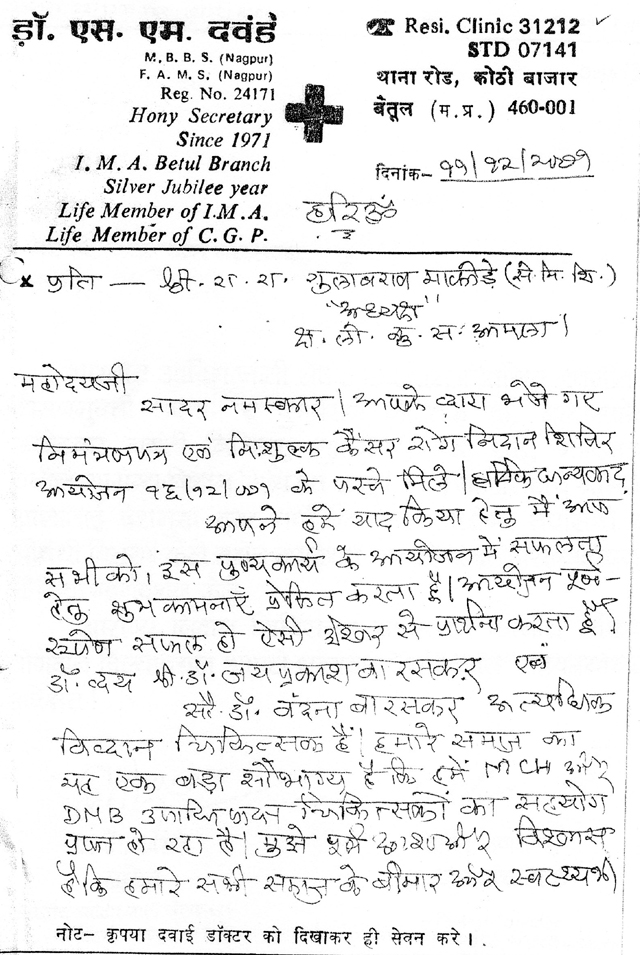 डॉ. एस. एम. दवंडे
M. B. B. S. (Nagpur)
F. A. M. S. (Nagpur)
Reg. No. 24171
Hony Secretary
Since 1971
I. M. A. Betul Branch
Silver Jubilee year
Life Member of I.M.A.
Life Member of C. G. P.
☎ Resi. Clinic 31212
STD 07141
थाना रोड, कोठी बाजार
बैतूल (म. प्र.) 460-001
दिनांक- ११/१२/२००१
हरिॐ
प्रति — श्री. रा. रा. गुलाबराव माकोडे (से. नि. शि.)
"अध्यक्ष"
क्ष. लो. कु. स. आमला।
महोदयजी
सादर नमस्कार। आपके द्वारा भेजे गए
निमंत्रणपत्र एवं निःशुल्क कैंसर रोग निदान शिविर
आयोजन १६/१२/००१ के परचे मिले। हार्दिक धन्यवाद
आपने हमें याद किया हेतु मैं आप
सभी को, इस पुण्यकार्य के आयोजन में सफलता
हेतु शुभकामनाएँ प्रेषित करता हूँ। आयोजन पूर्ण-
रूपेण सफल हो ऐसी ईश्वर से प्रार्थना करता हूँ।
डॉ. द्वय श्री. डॉ. जयप्रकाश बारस्कर एवं
सौ. डॉ. वंदना बारस्कर अत्याधिक
विद्वान चिकित्सक हैं। हमारे समाज का
यह एक बड़ा सौभाग्य है कि हमें MCH और
DNB उपाधि प्राप्त चिकित्सकों का सहयोग
प्राप्त हो रहा है। मुझे पूर्ण आशा और विश्वास
है कि हमारे सभी समाज के बीमार और
नोट- कृपया दवाई डॉक्टर को दिखाकर ही सेवन करे।